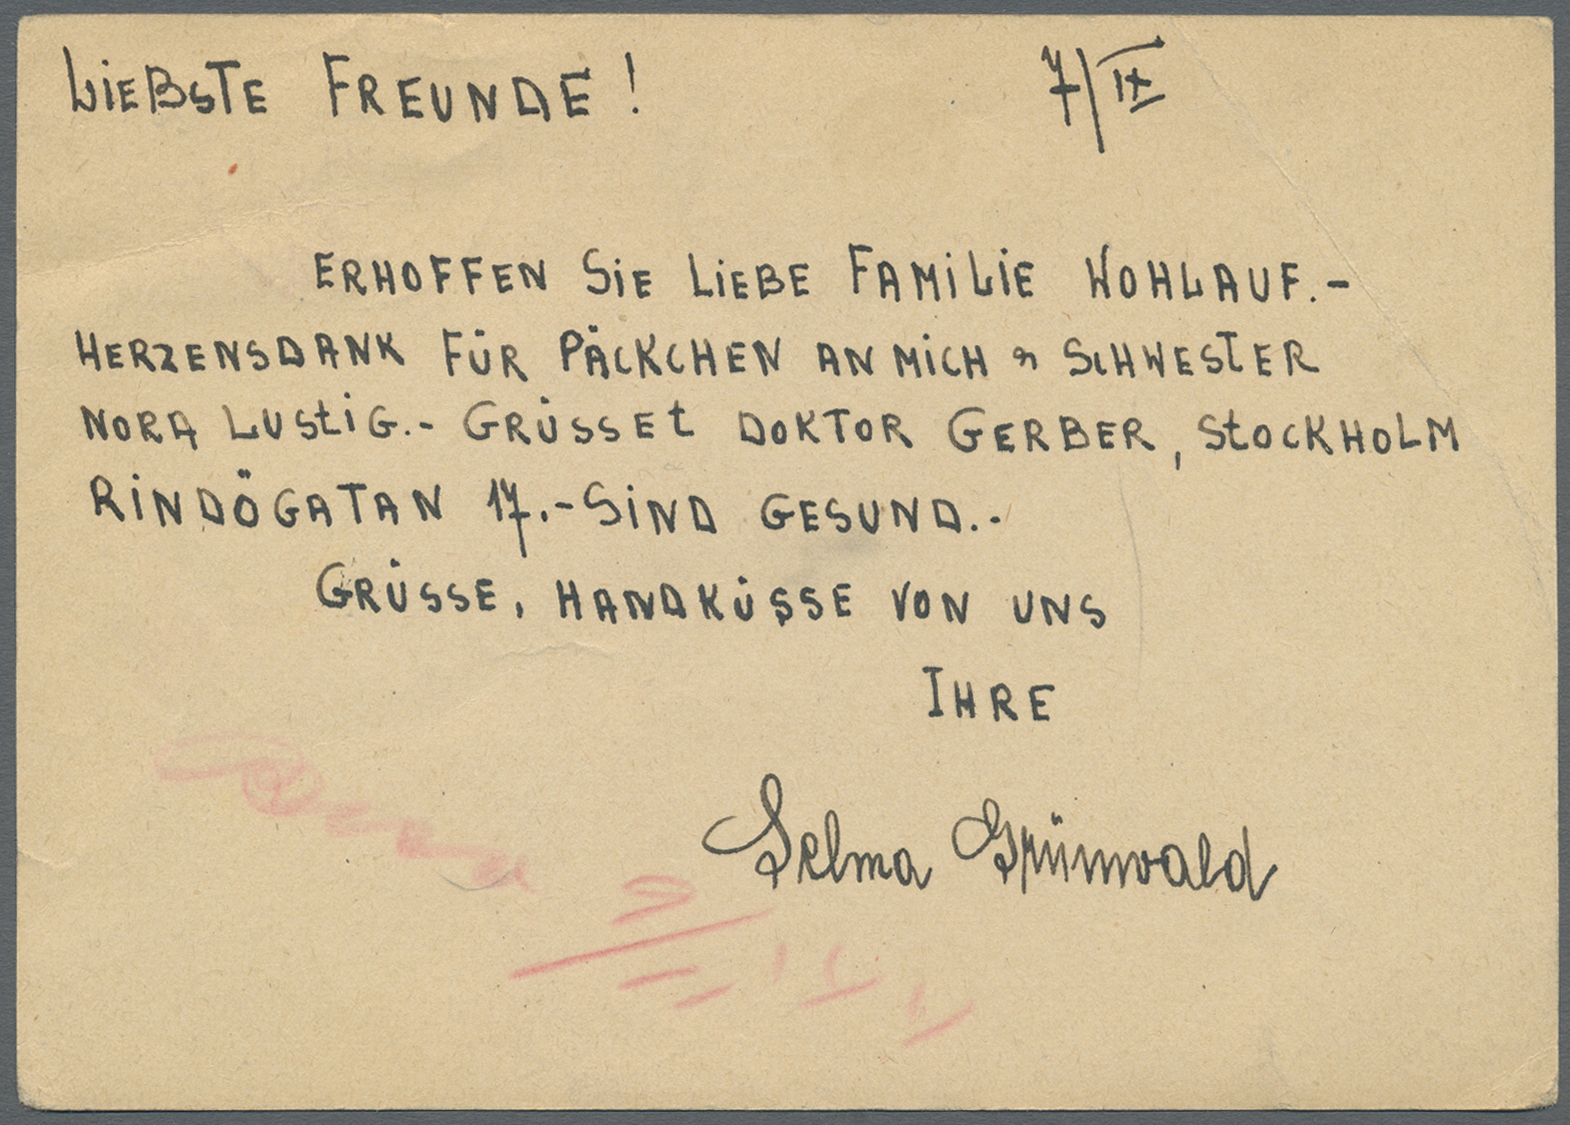 LIEBSTE FREUNDE! 7/IX
ERHOFFEN SIE LIEBE FAMILIE WOHLAUF.-
HERZENSDANK FÜR PÄCKCHEN AN MICH u SCHWESTER
NORA LUSTIG.- GRÜSSET DOKTOR GERBER, STOCKHOLM
RINDÖGATAN 17.- SIND GESUND.-
GRÜSSE, HANDKÜSSE VON UNS
IHRE
Selma Grünwald